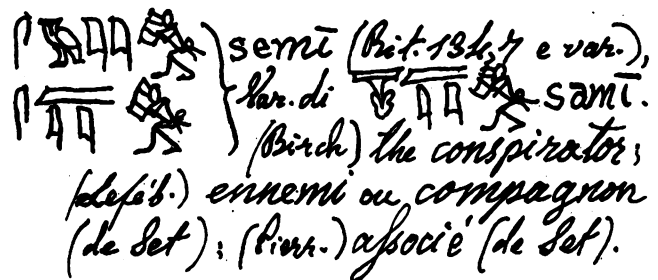 semī (Rit. 134,7 e var.),
Var. di samī.
(Birch) the conspirator;
(Leféb.) ennemi ou compagnon
(de Set); (Pierr.) associé (de Set).